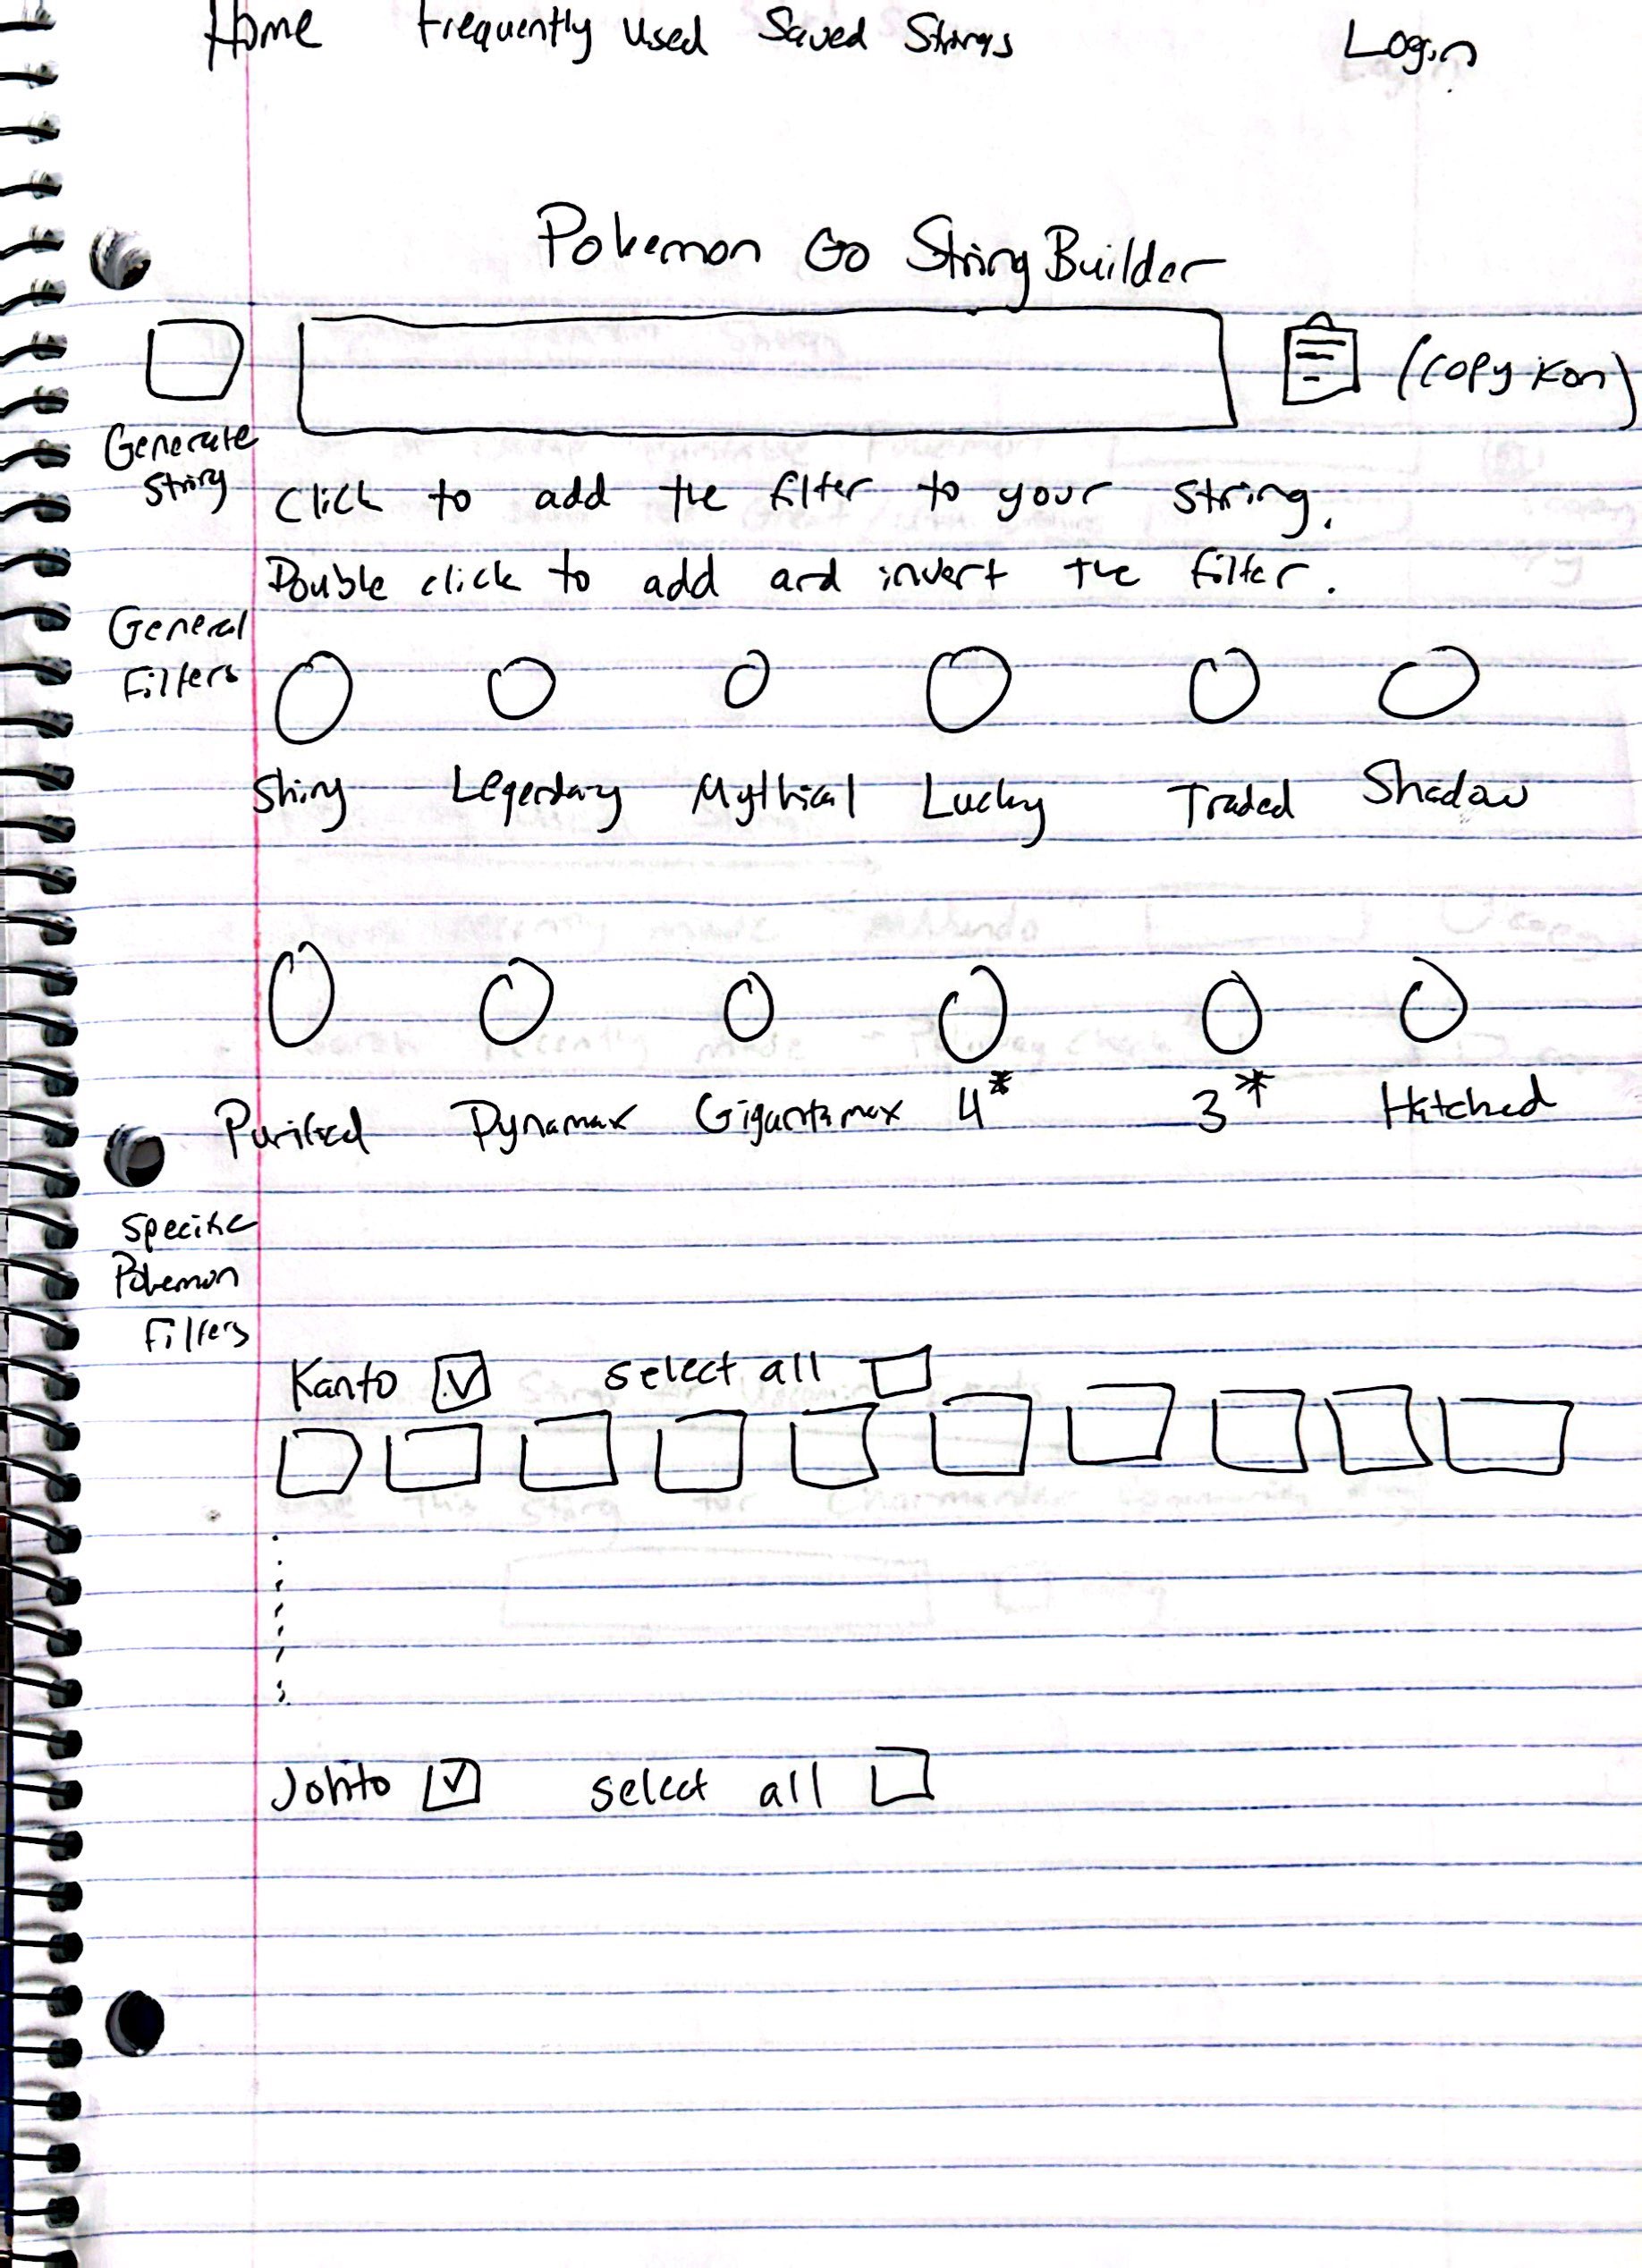 Home Frequently Used Saved Strings Login
Pokemon Go String Builder
(copy icon)
Generate
String
Click to add the filter to your string.
Double click to add and invert the filter.
General
Filters
Shiny Legendary Mythical Lucky Traded Shadow
Purified Dynamax Gigantamax 4* 3* Hatched
Specific
Pokemon
Filters
Kanto select all
Johto select all